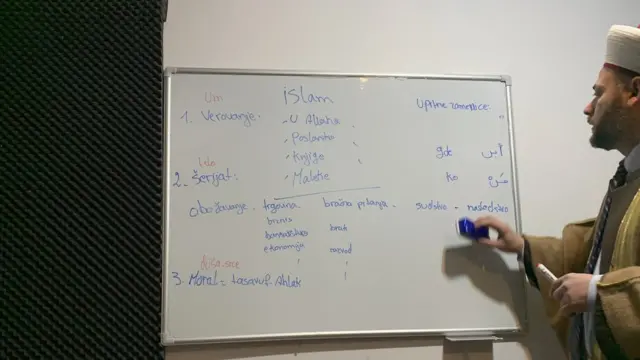 Um islam upitne zamenice
1. Verovanje.
- U Allaha
- Poslanike
- Knjige gde أين
telo
2. Šerijat: - Maleke ko
obožavanje. trgovina bračna pitanja. sudstvo - nasledstvo
biznis
bankarstvo brak
ekonomija razvod
3. Moral = tasavuf. Ahlak